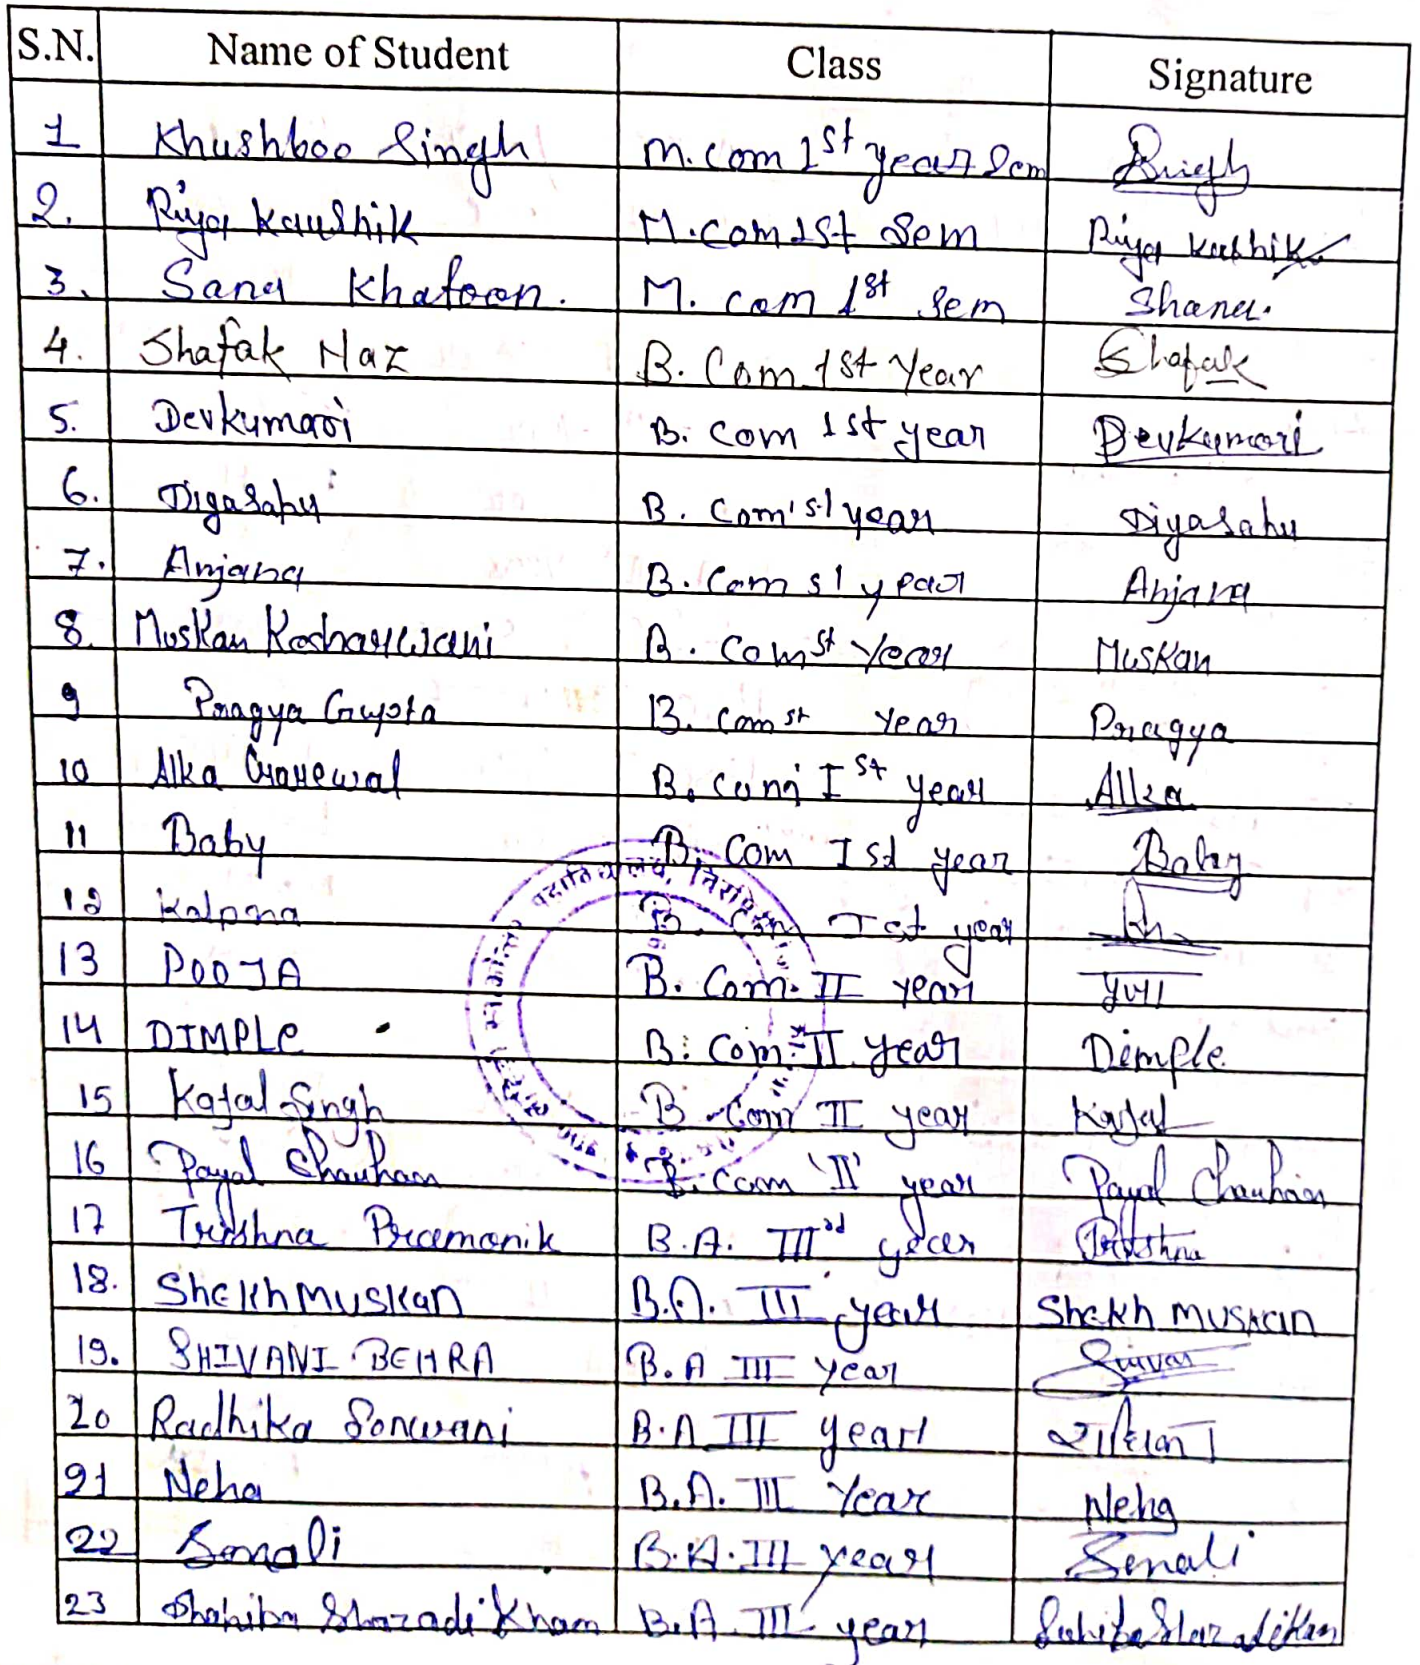 S.N. Name of Student Class Signature
1 Khushboo Singh M.com 1st year Sem Singh
2. Riya Kaushik M.com 1st Sem Riya Kaushik
3. Sana Khatoon. M. com 1st Sem Shana.
4. Shafak Naz B. Com 1st Year Shafak
5. Devkumari B. Com 1st year Devkumari
6. Diyasahu B. Com 1st year Diyasahu
7. Anjana B. Com st year Anjana
8. Muskan B. Com st Year Muskan
9 Pragya Gupta B. Com st Year Pragya
10 Alka B. Com Ist year Alka
11 Baby B. Com Ist year Baby
12 Kalpna B. Com Ist year
13 POOJA B. Com. II year पूजा
14 DIMPLe B. Com. II year Dimple
15 Kajal Singh B com II year Kajal
16 Payal Chauhan B. com 'II' year Payal Chauhan
17 Trishna Pramanik B.A. IIIrd year Trishna
18. Shekh MUSKan B.A. III year Shekh MUSKan
19. SHIVANI BEHRA B.A III year Shivani
20 Radhika Sonwani B.A III year राधिका
21 Neha B.A. III Year Neha
22 Sonali B.A. III year Sonali
23 Shahiba Shazadi Khan B.A. III year